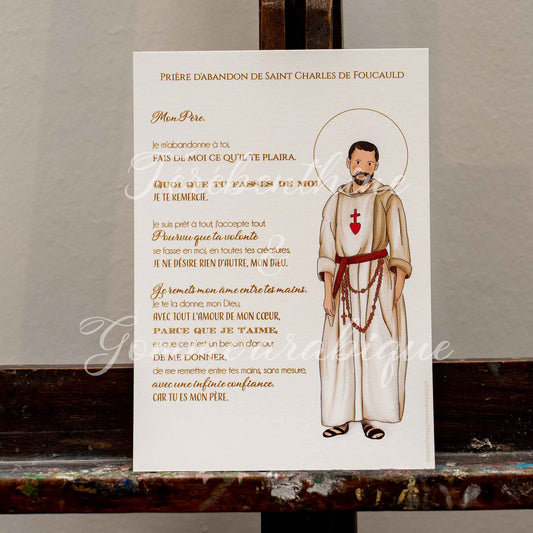 PRIÈRE D'ABANDON DE SAINT CHARLES DE FOUCAULD
Mon Père,
Je m'abandonne à toi,
FAIS DE MOI CE QU'IL TE PLAIRA.
QUOI QUE TU FASSES DE MOI
JE TE REMERCIE.
Je suis prêt à tout, j'accepte tout.
Pourvu que ta volonté
se fasse en moi, en toutes tes créatures,
JE NE DÉSIRE RIEN D'AUTRE, MON DIEU.
Je remets mon âme entre tes mains.
Je te la donne, mon Dieu,
AVEC TOUT L'AMOUR DE MON CŒUR,
PARCE QUE JE T'AIME,
et que ce m'est un besoin d'amour
DE ME DONNER,
de me remettre entre tes mains, sans mesure,
avec une infinie confiance,
CAR TU ES MON PÈRE.
Térébenthine
&
Gomme arabique